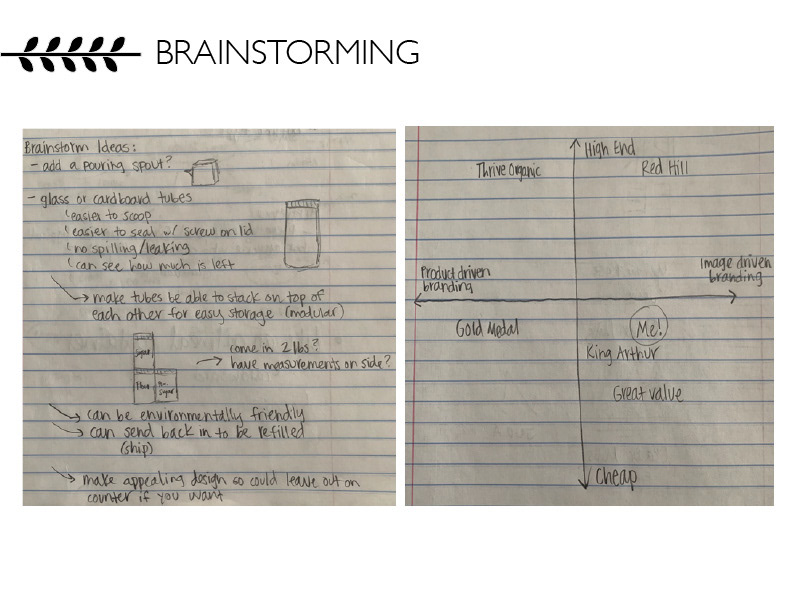 BRAINSTORMING
Brainstorm Ideas:
- add a pouring spout?
- glass or cardboard tubes
easier to scoop
easier to seal w/ screw on lid
no spilling/leaking
can see how much is left
make tubes be able to stack on top of
each other for easy storage (modular)
Sugar
Flour
Sugar
come in 2 lbs?
have measurements on side?
can be environmentally friendly
can send back in to be refilled
(ship)
make appealing design so could leave out on
counter if you want
High End
Thrive Organic
Red Hill
Product driven
branding
Image driven
branding
Gold Medal
Me!
King Arthur
Great value
Cheap